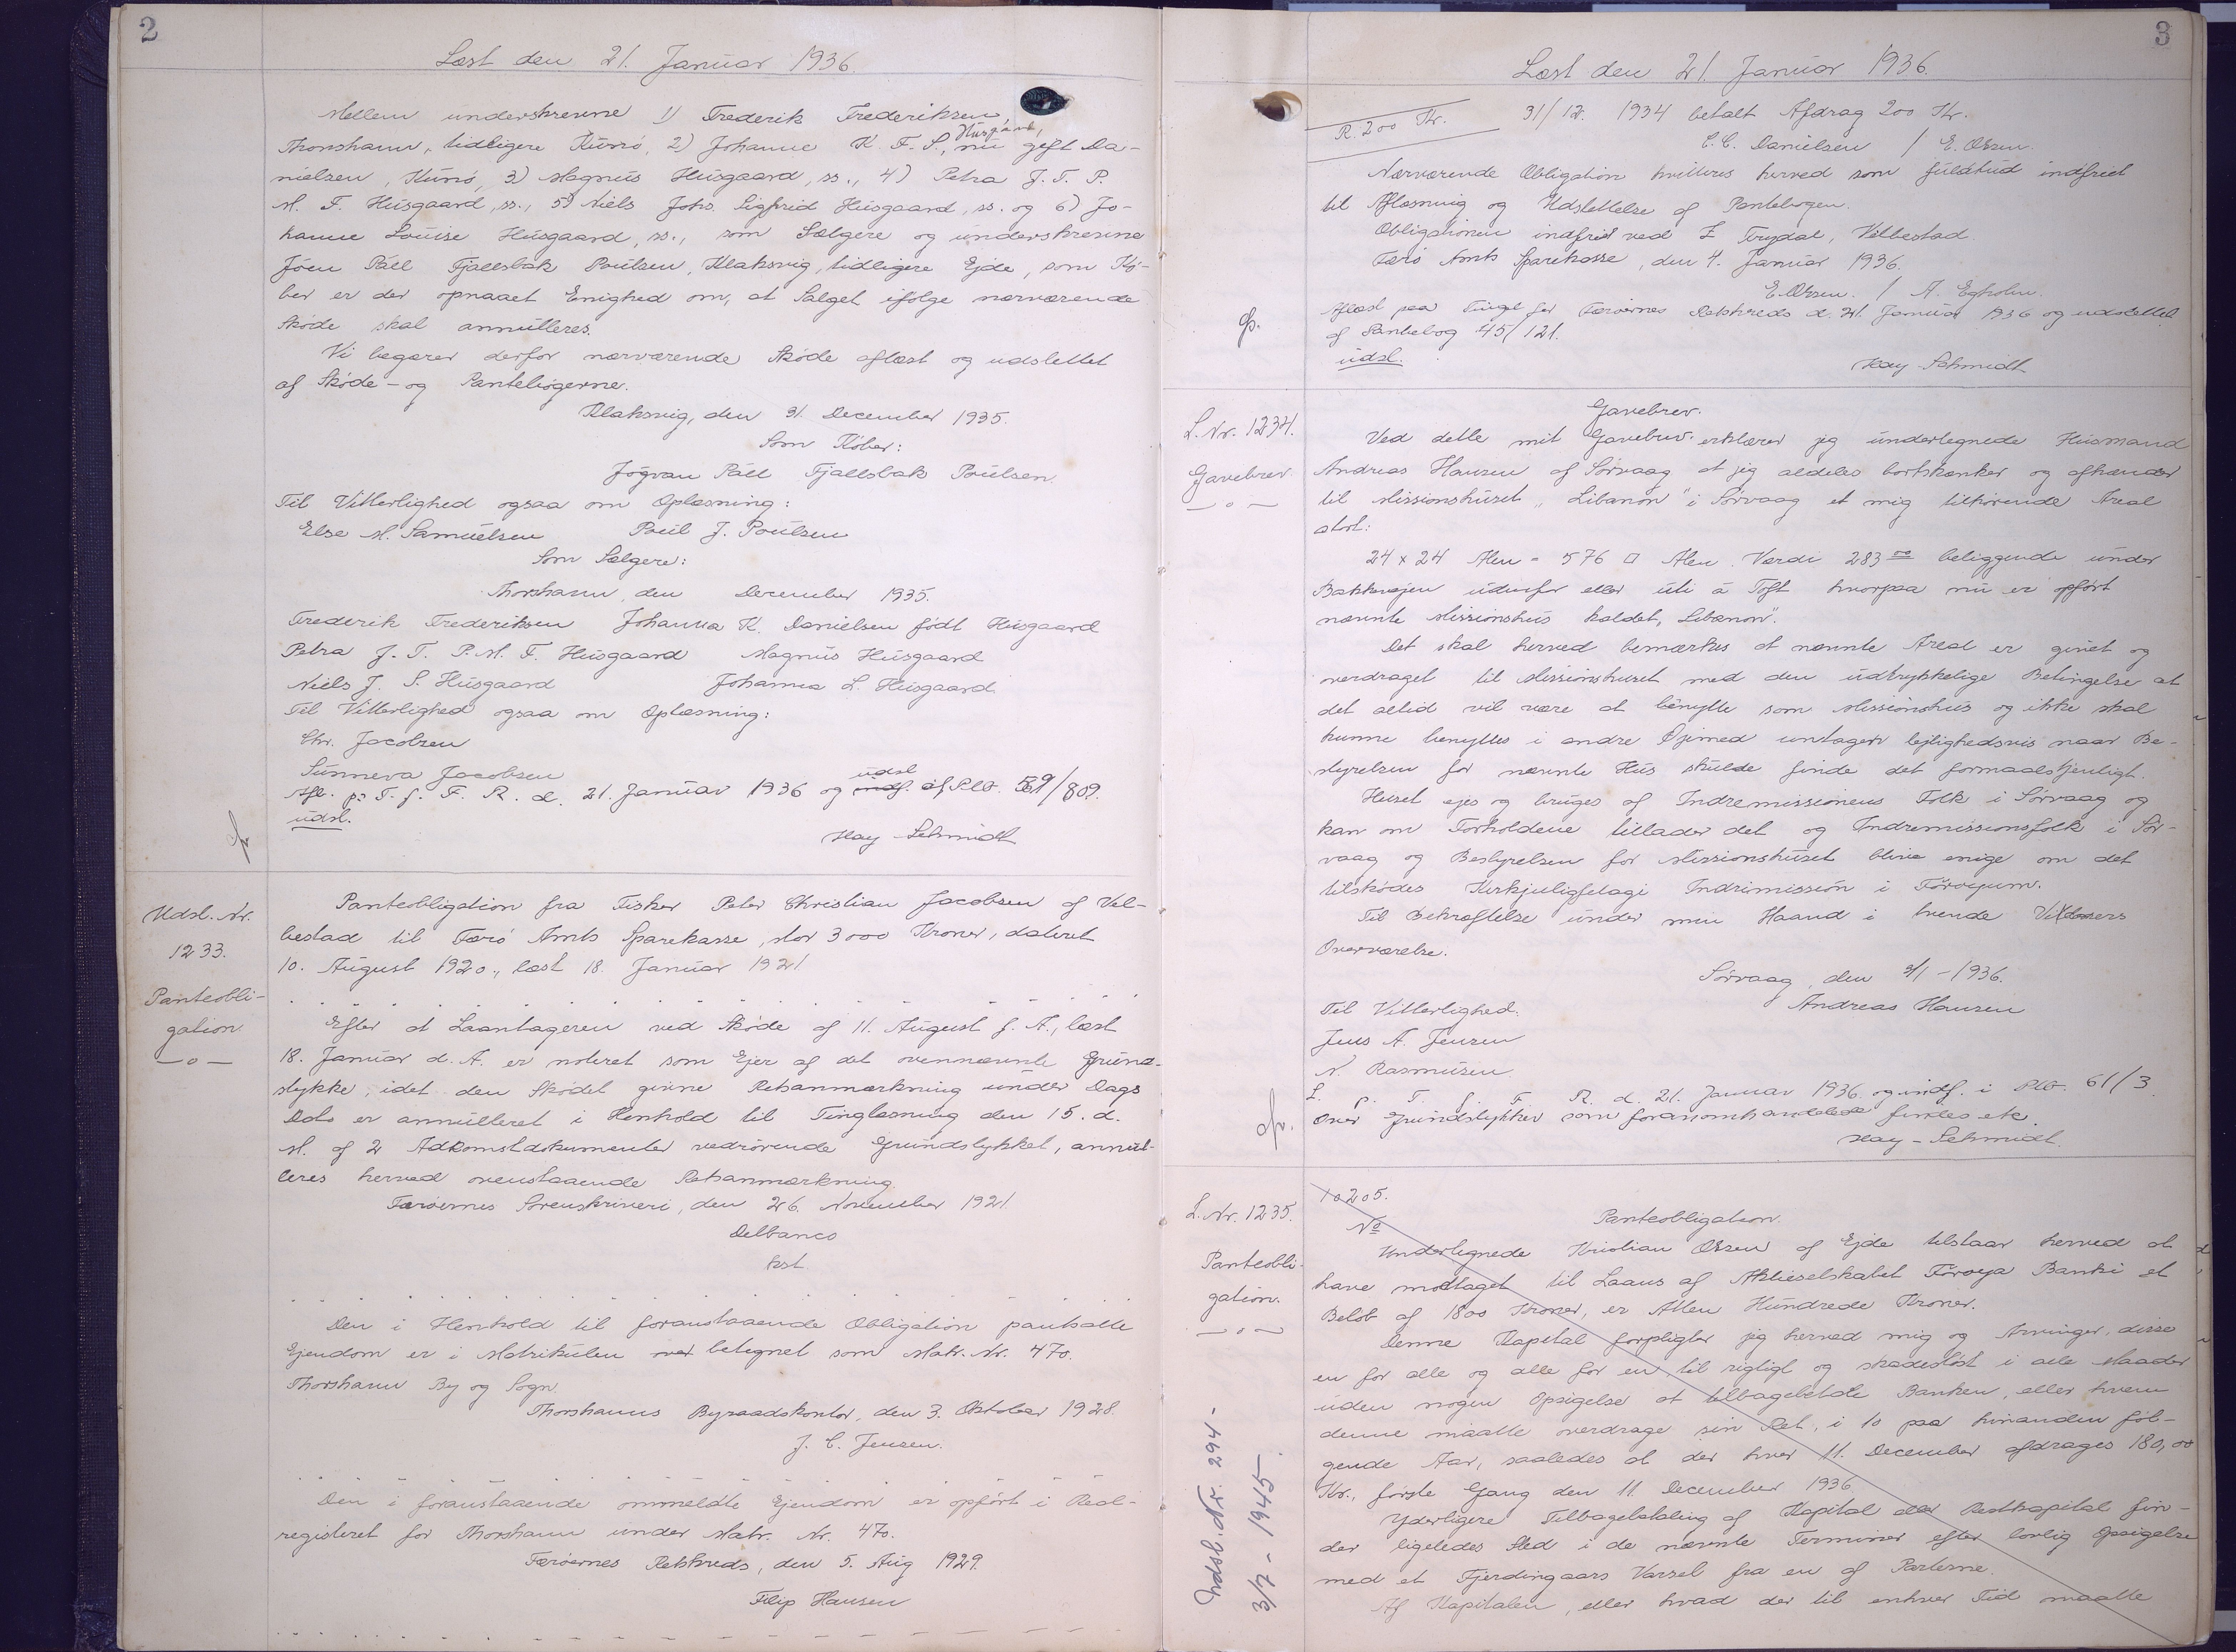 2
Læst den 21. Januar 1936.
Mellem underskrevne 1) Frederik Frederiksen,
Thorshavn, tidligere Kunø, 2) Johanne K. F. S. Husgaard, nu gift Da-
nielsen, Kunø, 3) Magnus Husgaard, ss., 4) Petra J. T. P.
M. F. Husgaard, ss., 5) Niels Johs. Sigfrid Husgaard, ss. og 6) Jo-
hanne Louise Husgaard, ss., som Sælgere og underskrevne
Jóen Páll Fjallsbak Poulsen, Klaksvig, tidligere Ejde, som Kø-
ber er der opnaaet Enighed om, at Salget ifølge nærværende
Skøde skal annulleres.
Vi begærer derfor nærværende Skøde aflæst og udslettet
af Skøde- og Pantebøgerne.
Klaksvig, den 31. December 1935.
Som Køber:
Jógvan Páll Fjallsbak Poulsen.
Til Vitterlighed ogsaa om Oplæsning:
Else M. Samuelsen Poul J. Poulsen
Som Sælgere:
Thorshavn, den December 1935.
Frederik Frederiksen Johanna K. Danielsen født Husgaard
Petra J. T. P. M. F. Husgaard Magnus Husgaard
Niels J. S. Husgaard Johanna L. Husgaard.
Til Vitterlighed ogsaa om Oplæsning:
Chr. Jacobsen
Sunneva Jacobsen
Afl. p. T. f. F. R. d. 21. Januar 1936 og udsl. af Pb. 59/809.
udsl.
Kay-Schmidt
Udsl. Nr.
1233.
Panteobli-
gation.
—o—
Panteobligation fra Fisker Peter Christian Jacobsen af Vel-
bestad til Færø Amts Sparekasse, stor 3000 Kroner, dateret
10. August 1920., læst 18. Januar 1921
Efter at Laantageren ved Skøde af 11. August f. A., læst
18. Januar d. A. er noteret som Ejer af det ovennævnte Grund-
stykke, idet den Skødet givne Retsanmærkning under Dags
Dato er annulleret i Henhold til Tinglæsning den 15. d.
M. af 2 Adkomstdokumenter vedrørende Grundstykket, annul-
leres herved ovenstaaende Retsanmærkning.
Færøernes Sorenskriveri, den 26. November 1921.
Delbanco
kst.
Den i Henhold til foranstaaende Obligation pantsatte
Ejendom er i Matrikulen betegnet som Matr. Nr. 470.
Thorshavn By og Sogn.
Thorshavns Byraadskontor, den 3. Oktober 1928.
J. C. Jensen.
Den i foranstaaende ommeldte Ejendom er opført i Real-
registeret for Thorshavn under Matr. Nr. 470.
Færøernes Retskreds, den 5. Aug 1929.
Filip Hansen
3
Læst den 21. Januar 1936.
R. 200 Kr. 31/12. 1934 betalt Afdrag 200 Kr.
C. C. Danielsen / E. Olsen.
Nærværende Obligation kvitteres herved som fuldtud indfriet
til Aflæsning og Udslettelse af Pantebogen.
Obligationen indfriet ved Z Trydal, Velbestad.
Færø Amts Sparekasse, den 4. Januar 1936.
E. Olsen. / A. Egholm.
Aflæst paa Tinget for Færøernes Retskreds d. 21. Januar 1936 og udslettet
af Pantebog 45/121.
udsl.
Kay-Schmidt
L. Nr. 1234.
Gavebrev.
—o—
Gavebrev.
Ved dette mit Gavebrev erklærer jeg undertegnede Husmand
Andreas Hansen af Sørvaag at jeg aldeles bortskænker og afhænder
til Missionshuset „Libanon" i Sørvaag et mig tilhørende Areal
stort:
24 x 24 Alen = 576 □ Alen. Værdi 283 00 beliggende under
Bakkevejen udenfor eller úti á Toft hvorpaa nu er opført
nævnte Missionshus kaldet „Libanon".
Det skal herved bemærkes at nævnte Areal er givet og
overdraget til Missionshuset med den udtrykkelige Betingelse at
det altid vil være at benytte som Missionshus og ikke skal
kunne benyttes i andre Øjemed untagen lejlighedsvis naar Be-
styrelsen for nævnte Hus skulde finde det formaalstjenligt.
Huset ejes og bruges af Indremissionens Folk i Sørvaag og
kan om Forholdene tillader det og Indremissionsfolk i Sør-
vaag og Bestyrelsen for Missionshuset blive enige om det
tilskødes Kirkjuligfelagi Indrimissión i Føroyum.
Til Bekræftelse under min Haand i tvende Vidners
Overværelse.
Sørvaag, den /1-1936.
Andreas Hansen
Til Vitterlighed.
Jens A. Jensen
N. Rasmusen.
L. p. T. f. F. R. d. 21. Januar 1936. og indf. i Pb. 61/3
Over Grundstykker som foranomhandlede findes etc.
Kay-Schmidt.
L. Nr. 1235.
Panteobli-
gation.
—o—
Udsl. Nr. 294-
3/7-1945.
10205.
No
Panteobligation.
Undertegnede Kristian Olsen af Ejde tilstaar herved at
have modtaget til Laans af Aktieselskabet Føroya Banki et
Beløb af 1800 Kroner, er Atten Hundrede Kroner.
Denne Kapital forpligter jeg herved mig og Arvinger, disse
en for alle og alle for en, til rigtigt og skadesløst i alle Maader
uden nogen Opsigelse at tilbagebetale Banken, eller hvem
denne maatte overdrage sin Ret, i 10 paa hinanden føl-
gende Aar, saaledes at der hver 11. December afdrages 180,00
Kr., første Gang den 11 December 1936.
Yderligere Tilbagebetaling af Kapital eller Restkapital fin-
der ligeledes Sted i de nævnte Terminer efter lovlig Opsigelse
med et Fjerdingaars Varsel fra en af Parterne.
Af Kapitalen, eller hvad der til enhver Tid maatte